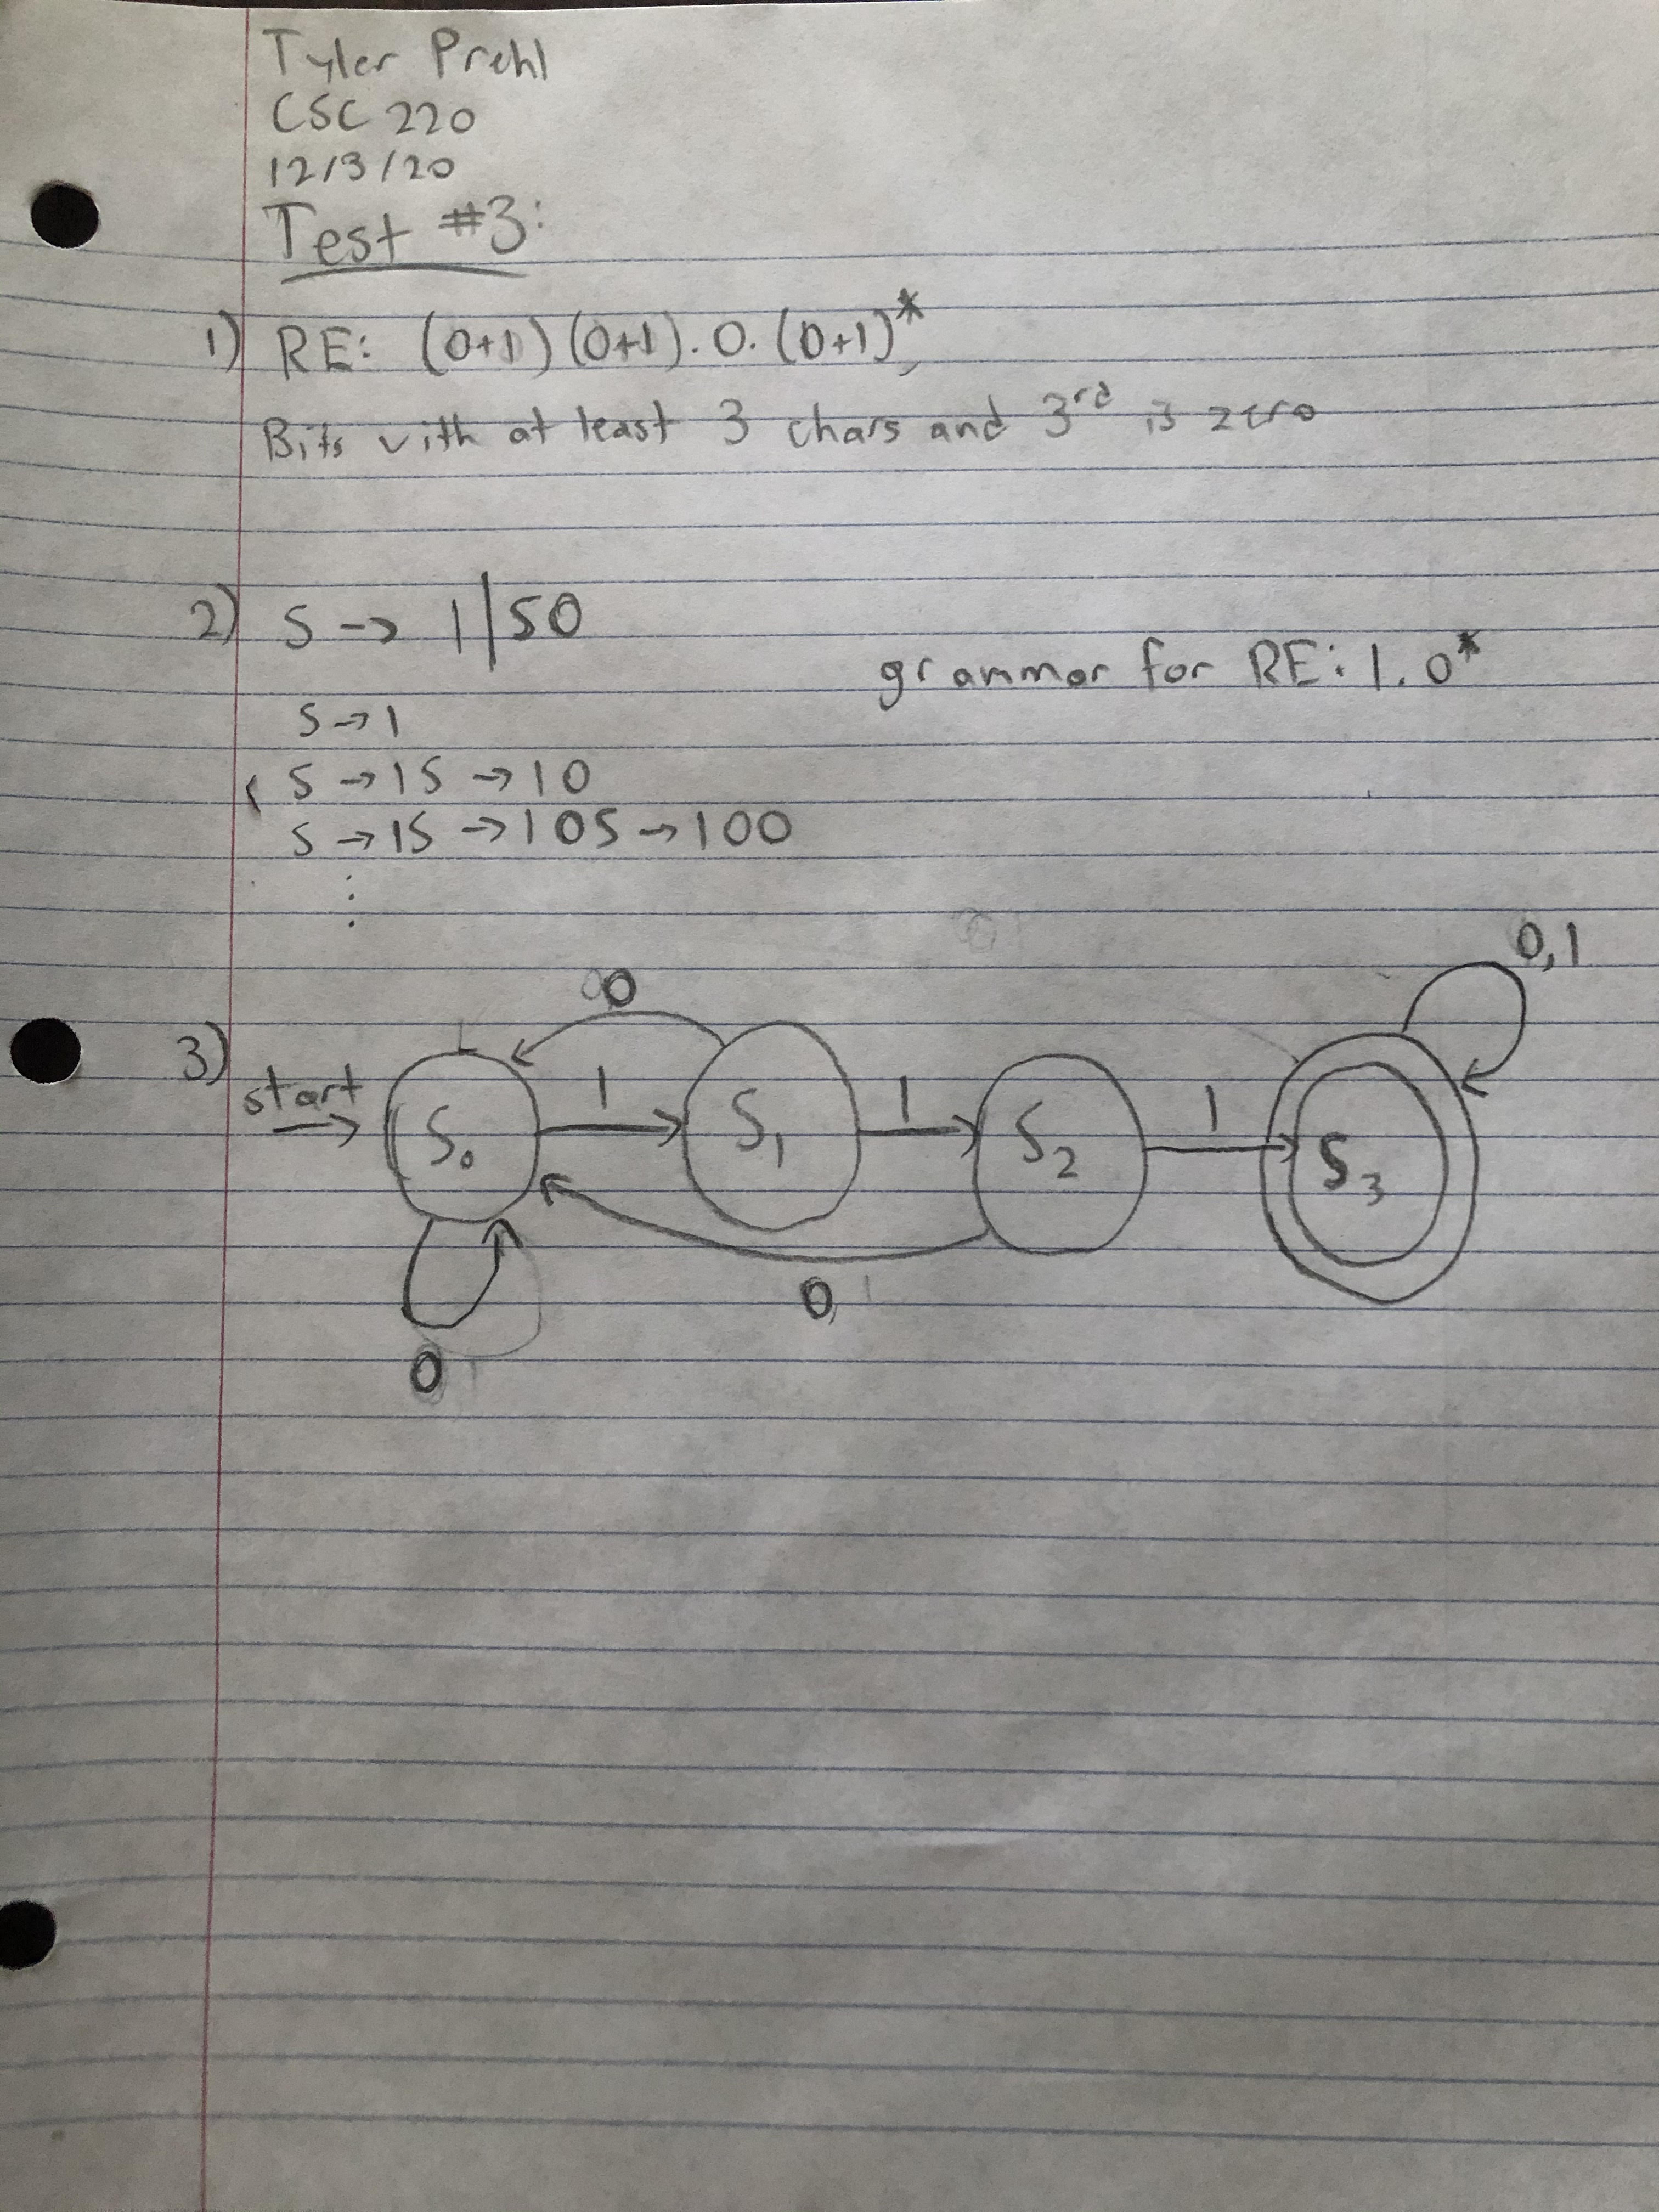 Tyler Prehl
CSC 220
12/3/20
Test #3:
1) RE: (0+1)(0+1).0.(0+1)*
Bits with at least 3 chars and 3rd is zero
2) S → 1|S0
grammar for RE: 1.0*
S → 1
S → 1S → 10
S → 1S → 10S → 100
⋮
0,1
0
3)
start
S₀ 1 S₁ 1 S₂ 1 S₃
0
0